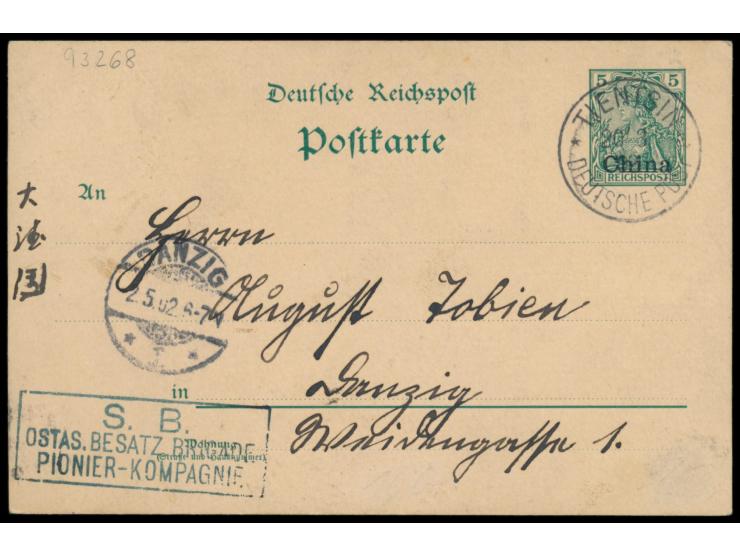 93268
Deutsche Reichspost
Postkarte
5 5
China
REICHSPOST
* TIENTSIN
DEUTSCHE POST
An
大
德
国
Herrn
* DANZIG
2.5.02.6-7N
* 1. *
August Tobien
in Danzig
Wohnung
(Straße und Hausnummer)
Weidengasse 1.
S. B.
OSTAS. BESATZ. BRIGADE
PIONIER-KOMPAGNIE.